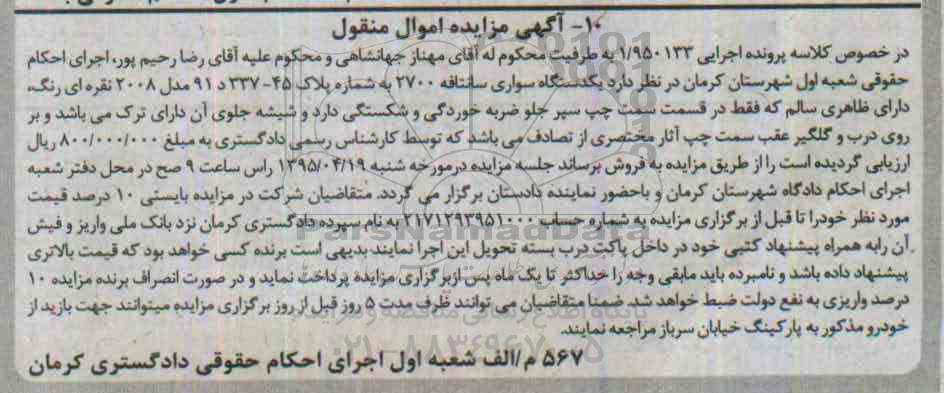 ۱۰- آگهی مزایده اموال منقول
در خصوص کلاسه پرونده اجرایی ۱/۹۵۰۱۳۳ به طرفیت محکوم له آقای مهناز جهانشاهی و محکوم علیه آقای رضا رحیم پور، اجرای احکام
حقوقی شعبه اول شهرستان کرمان در نظر دارد یکدستگاه سواری سانتافه ۲۷۰۰ به شماره پلاک ۴۵-۳۳۷ د ۹۱ مدل ۲۰۰۸ نقره ای رنگ،
دارای ظاهری سالم که فقط در قسمت سمت چپ سپر جلو ضربه خوردگی و شکستگی دارد و شیشه جلوی آن دارای ترک می باشد و بر
روی درب و گلگیر عقب سمت چپ آثار مختصری از تصادف می باشد که توسط کارشناس رسمی دادگستری به مبلغ ۸۰۰/۰۰۰/۰۰۰ ریال
ارزیابی گردیده است را از طریق مزایده به فروش برساند جلسه مزایده درمورخه شنبه ۱۳۹۵/۰۴/۱۹ راس ساعت ۹ صبح در محل دفتر شعبه
اجرای احکام دادگاه شهرستان کرمان و باحضور نماینده دادستان برگزار می گردد. متقاضیان شرکت در مزایده بایستی ۱۰ درصد قیمت
مورد نظر خودرا تا قبل از برگزاری مزایده به شماره حساب ۲۱۷۱۲۹۳۹۵۱۰۰۰ به نام سپرده دادگستری کرمان نزد بانک ملی واریز و فیش
آن رابه همراه پیشنهاد کتبی خود در داخل پاکت درب بسته تحویل این اجرا نمایند بدیهی است برنده کسی خواهد بود که قیمت بالاتری
پیشنهاد داده باشد و نامبرده باید مابقی وجه را حداکثر تا یک ماه پس ازبرگزاری مزایده پرداخت نماید و در صورت انصراف برنده مزایده ۱۰
درصد واریزی به نفع دولت ضبط خواهد شد. ضمنا متقاضیان می توانند ظرف مدت ۵ روز قبل از روز برگزاری مزایده میتوانند جهت بازید از
خودرو مذکور به پارکینگ خیابان سرباز مراجعه نمایند.
۵۶۷ م/الف شعبه اول اجرای احکام حقوقی دادگستری کرمان
ParsNamadData